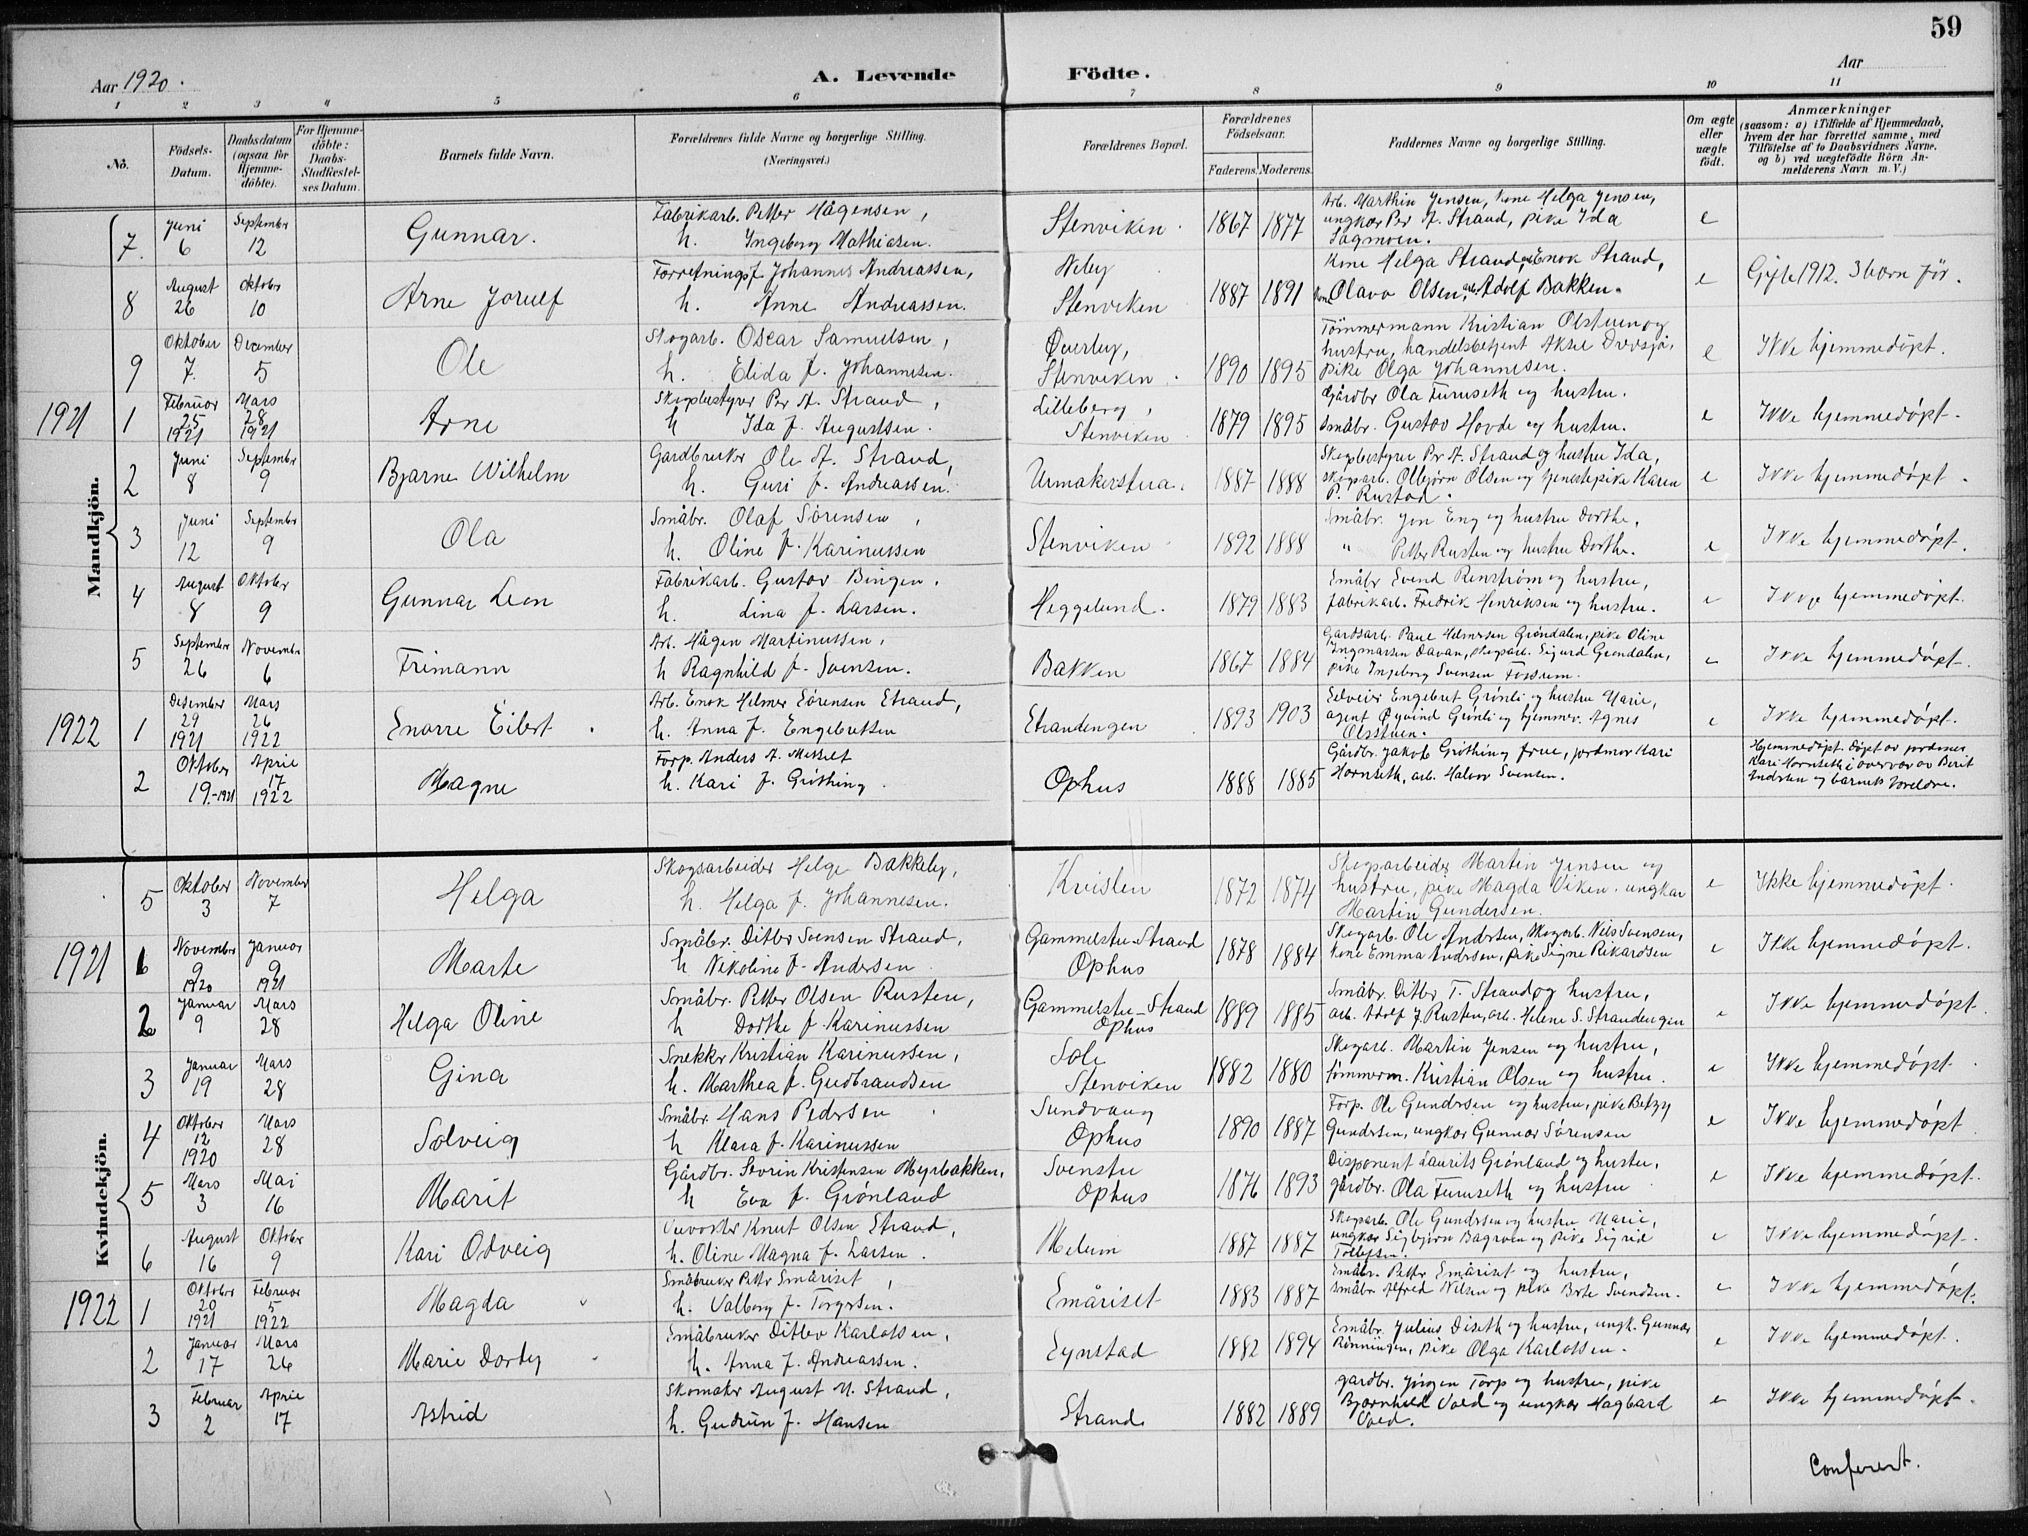 59
Aar 1920.
A. Levende Födte.
Aar
1 2 3 4 5 6 7 8 9 10 11
No.
Födsels-Datum.
Daabsdatum (ogsaa for Hjemme-döbte).
For Hjemme-döbte: Daabs-Stadfæstel-ses Datum.
Barnets fulde Navn.
Forældrenes fulde Navne og borgerlige Stilling. (Næringsvei.)
Forældrenes Bopæl.
Forældrenes Födselsaar.
Faderens. Moderens.
Faddernes Navne og borgerlige Stilling.
Om ægte eller uægte födt.
Anmærkninger (saasom: a) i Tilfælde af Hjemmedaab, hvem der har forrettet samme, med Tilföielse af to Daabsvidners Navne, og b) ved uægtefödte Börn An-melderens Navn m. V.)
Mandkjön.
7. Juni 6 September 12 Gunnar. Fabrikarb. Petter Hågensen, h. Ingeborg Mathiesen. Stenviken. 1867 1877 Arb. Marthin Jensen, kone Helga Jensen, ungkar Per A. Strand, pike Ida Sagmoen. e
8 August 26 Oktober 10 Arne Jorulf Forretningsf. Johannes Andreassen, h. Anne Andreassen. Neby Stenviken 1887 1891 Kone Helga Strand, Enok Strand, kone Olava Olsen, arb. Adolf Bakken. e Gifte 1912. 3 barn før.
9 Oktober 7. December 5 Ole Skogarb. Oscar Samuelsen, h. Elida f. Johannesen. Øverby, Stenviken. 1890 1895 Tømmermann Kristian Olstuen og hustru, handelsbetjent Aksel Øversjø, pike Olga Johannesen. e Ikke hjemmedøpt.
1921 1 Februar 25 1921 Mars 28 1921 Arne Skogbestyrer Per A. Strand, h Ida f. Augustsen. Lilleberg, Stenviken 1879 1895 Gårdbr Ola Furuseth og hustru. Småbr. Gustav Hovde og hustru. e Ikke hjemmedøpt.
2 Juni 8 September 9 Bjarne Wilhelm Gardbruker Ole A. Strand, h. Guri f. Andreassen. Urmakerstua. 1887 1888 Skogbestyrer Per A. Strand og hustru Ida, skogarb. Olbjørn Olsen og tjenestepike Karen P. Rustad. e Ikke hjemmedøpt.
3 Juni 12 September 9 Ola Småbr. Olaf Sørensen, h. Oline f. Karinussen Stenviken 1892 1888 Småbr. Jon Eng og hustru Dorthe, " Petter Rusten og hustru Dorthe. e Ikke hjemmedøpt.
4 August 8 Oktober 9 Gunnar Leon Fabrikarb. Gustav Bingen. h. Lina f. Larsen. Heggelund. 1879 1883 Småbr Svend Renstrøm og hustru, fabrikarb. Fredrik Henriksen og hustru. e Ikke hjemmedøpt.
5 September 26 November 6 Frimann Arb. Hågen Martinussen, h Ragnhild f. Svensen. Bakken 1867 1884 Gardsarb. Paul Helmersen Grøndalen, pike Oline Ingmarsen Davan, skogarb. Sigurd Grøndalen, pike Ingeborg Svensen Fossum. e Ikke hjemmedøpt.
1922 1 Desember 29 1921 Mars 26 1922 Snorre Eilert Arb. Enok Helmer Sørensen Strand, h. Anna f. Engebretsen Strandengen 1893 1903 Selveier Engebret Grønli og hustru Marie, agent Øyvind Grønli og hjemmev. Agnes Olsstuen. e Ikke hjemmedøpt.
2 Oktober 19.-1921 April 17 1922 Magne Forp. Anders A. Messelt h. Kari f. Grøthing. Ophus 1888 1885 Gårdbr. Jakob Grøthing frue, jordmor Kari Hornseth, arb. Halvor Svensen. Hjemmedøpt. døpt av jordmor Kari Hornseth i overvær av Berit Andrsen og barnets foreldre.
Kvindekjön.
5 Oktober 3 November 7 Helga Skogsarbeider Helge Bakkeby, h. Helga f. Johannesen. Kvislen 1872 1874 Skogsarbeider Martin Jensen og hustru, pike Magda Viken. ungkar Martin Gundersen. e Ikke hjemmedöpt.
1921 1 November 9 1920 Januar 9 1921 Marte Småbr. Ditlev Svensen Strand, h Nikoline f. Andersen. Gammelstu-Strand Ophus 1878 1884 Skogarb. Ole Andersen, skogarb. Nils Svensen, kone Emma Andersen, pike Signe Rikardsen e Ikke hjemmedøpt.
2 Januar 9 Mars 28 Helga Oline Småbr. Petter Olsen Rusten, h Dorthe f. Karinussen Gammelstu-Strand Ophus 1889 1885 Småbr. Ditlev T. Strand og hustru, arb. Adolf J. Rusten, arb. Helene S. Strandengen e Ikke hjemmedøpt.
3 Januar 19 Mars 28 Gina Snekker Kristian Karinussen, h. Marthea f. Gudbrandsen Sole Stenviken 1882 1880 Skogarb. Martin Jensen og hustru, tømmerm. Kristian Olsen og hustru. e Ikke hjemmedøpt.
4 Oktober 12 1920 Mars 28 Solveig Småbr. Hans Pedersen h Klara f. Karinussen Sundvang Ophus 1890 1887 Forp. Ole Gundersen og hustru, pike Betzy Gundersen, ungkar Gunnar Sørensen e Ikke hjemmedøpt
5 Mars 3 Mai 16 Marit Gårdbr. Sevrin Kristensen Myrbakken, h Eva f. Grønland Svenstu Ophus 1876 1893 Disponent Laurits Grønland og hustru, gårdbr. Ola Furuseth og hustru e Ikke hjemmedøpt.
6 August 16 Oktober 9 Kari Odveig Knut Olsen Strand, h. Oline Magna f. Larsen. Melum 1887 1887 Skogarb. Ole Gundersen og hustru Marie, ungkar Sigbjørn Bagroen og pike Sigrid Tollefsen. e Ikke hjemmedøpt.
1922 1 Oktober 20 1921 Februar 5 1922 Magda Småbruker Petter Småriset, h. Valborg f. Torgersen. Småriset 1883 1887 Småbr. Petter Småriset og hustru, småbr Alfred Nilsen og pike Berte Svendsen. e Ikke hjemmedøpt.
2 Januar 17 Mars 26 Marie Dorthy Småbruker Ditlev Karlotsen, h. Anna f. Andreassen. Synstad 1882 1894 Småbr. Julius Diseth og hustru, ungk. Gunnar Rønningen, pike Olga Karlotsen. e Ikke hjemmedøpt.
3 Februar 2 April 17 Astrid Skomaker August M. Strand, h. Gudrun f. Hansen Strand 1882 1889 gardbr. Jörgen Torp og hustru, pike Bjørnhild Vold og ungkar Hagbard Vold. e Ikke hjemmedøpt.
Conferert.